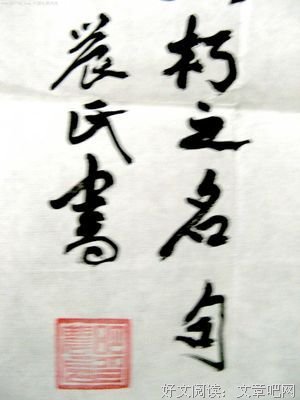 朽之名句
農氏書
好文阅读：文章吧网